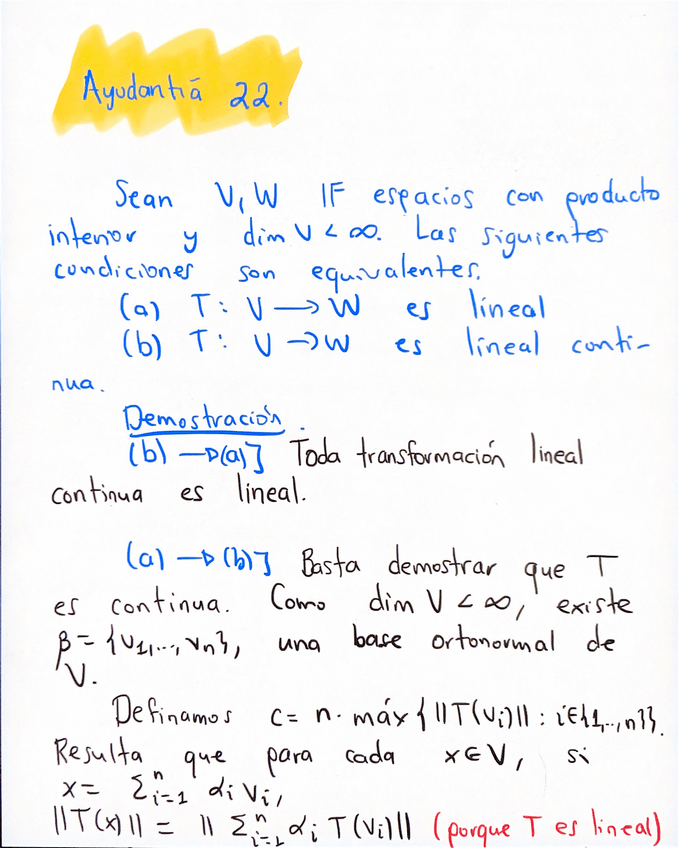 Ayudantiá 22.
Sean V, W IF espacios con producto
interior y dim V < ∞. Las siguientes
condiciones son equivalentes.
(a) T: V → W es lineal
(b) T: V → W es lineal conti-
nua.
Demostración.
(b) → (a)] Toda transformación lineal
continua es lineal.
(a) → (b)] Basta demostrar que T
es continua. Como dim V < ∞, existe
β = {v₁,..., vₙ}, una base ortonormal de
V.
Definamos c = n · máx {||T(vᵢ)|| : i∈{1,..,n}}.
Resulta que para cada x ∈ V, si
x = Σᵢ₌₁ⁿ αᵢ vᵢ,
||T(x)|| = || Σᵢ₌₁ⁿ αᵢ T(vᵢ)|| (porque T es lineal)